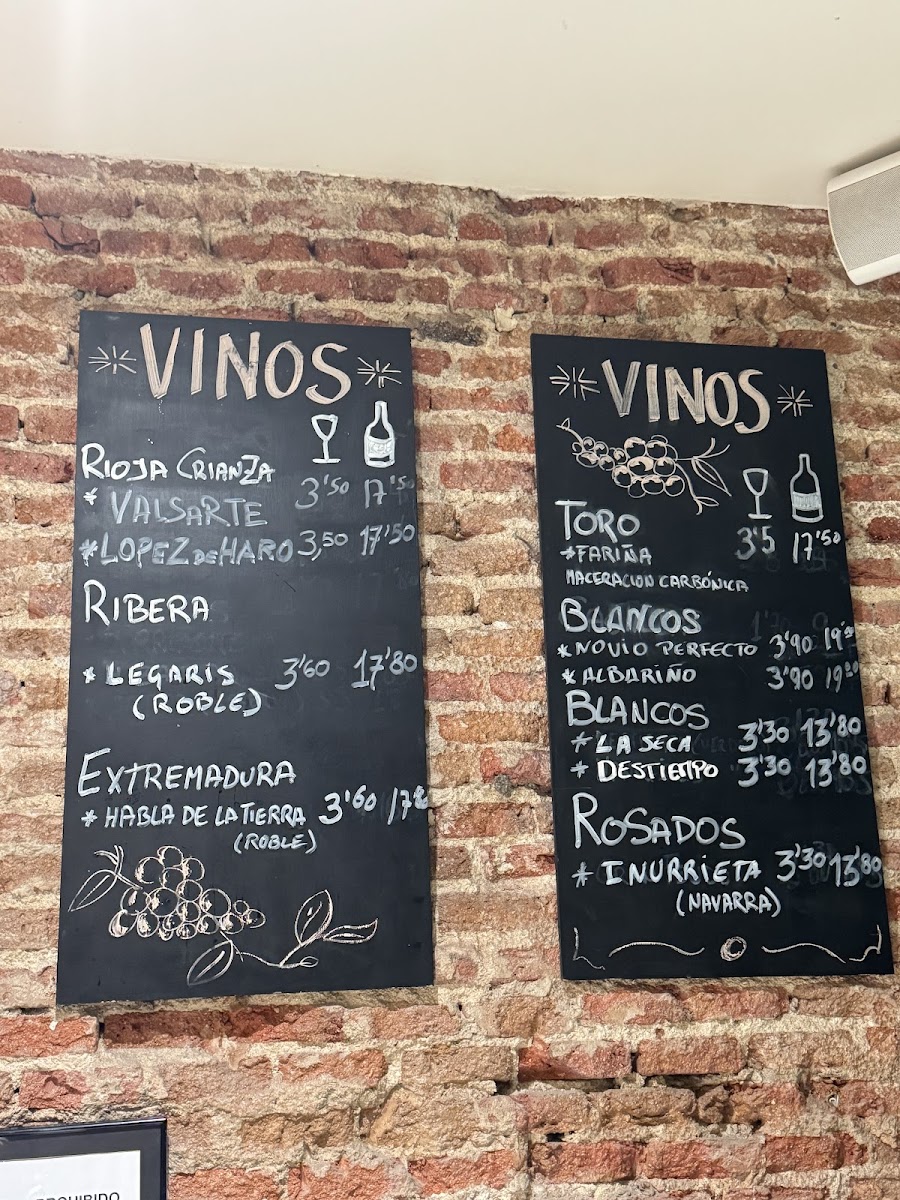 VINOS
RIOJA CRIANZA
* VALSARTE 3'50 17'50
* LOPEZ DE HARO 3,50 17'50
RIBERA
* LEGARIS 3'60 17'80
(ROBLE)
EXTREMADURA
* HABLA DE LA TIERRA 3'60 17'80
(ROBLE)
VINOS
TORO 3'5 17'50
* FARIÑA
MACERACION CARBÓNICA
BLANCOS
* NOVIO PERFECTO 3'90 19'50
* ALBARIÑO 3'90
BLANCOS
* LA SECA 3'30 13'80
* DESTIEMPO 3'30 13'80
ROSADOS
* INURRIETA 3'30 13'80
(NAVARRA)
PROHIBIDO